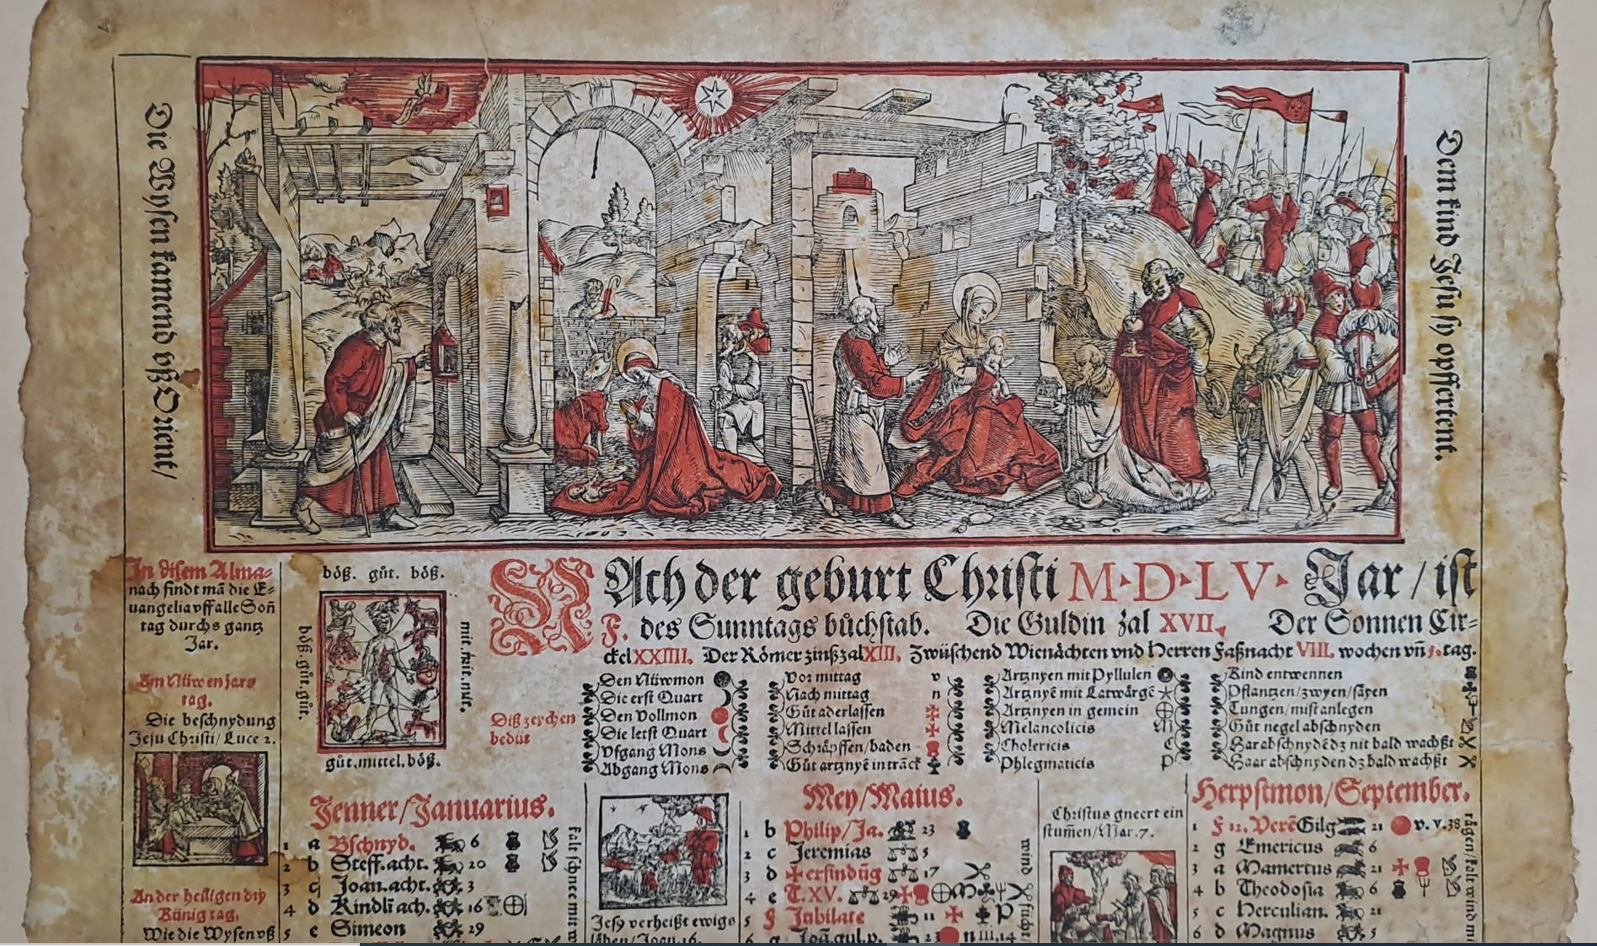 Die Wysen kamend uß Orient/
Dem kind Jesu sy opffertent.
In disem Alma-
nach findt mā die E-
uangelia vff alle Soñ
tag durchs gantz
Jar.
Am Nüwen jars
tag.
Die beschnydung
Jesu Christi/ Luce 2.
An der heiligen dry
Künig tag.
Wie die Wysen vß
böß. gůt. böß.
böß. gůt. gůt.
mit. mit. mit.
gůt. mittel. böß.
NAch der geburt Christi M·D·LV· Jar / ist
F. des Sunntags bůchstab. Die Guldin zal XVII. Der Sonnen Cir-
ckel XXIIII. Der Römer zinßzal XIII. Zwüschend Wienächten vnd Herren Faßnacht VIII. wochen vñ 1. tag.
Diß zeychen
bedüt
Den Nüwmon
Die erst Quart
Den Vollmon
Die letst Quart
Vfgang Mons
Abgang Mons
Vor mittag v
Nach mittag n
Gůt aderlassen
Mittel lassen
Schräpffen/baden
Gůt artznyē in träck
Artznyen mit Pyllulen
Artznyē mit Latwärgē
Artznyen in gemein
Melancolicis
Cholericis C
Phlegmaticis P
Kind entwennen
Pflantzen/zwyen/säyen
Tungen/mist anlegen
Gůt negel abschnyden
Har abschnydē dz nit bald wachßt
Haar abschnyden dz bald wachßt
Jenner/Januarius.
1 a Bschnyd. 6
2 b Steff. acht. 20
3 c Joan. acht. 3
4 d Kindli ach. 16
5 e Simeon 29
kalt schnee mit w
Jesus verheißt ewigs
läben/Joan. 16.
Mey/Maius.
1 b Philip/Ja. 23
2 c Jeremias 5
3 d ✠ erfindūg 17
4 e T.XV. 29
5 f Jubilate 11 P
6 g Joā. gul. p. 23 n III, 14
wind
Christus gneert ein
stum̄en/Mar. 7.
Herpstmon/September.
1 F 12. Verē Gilg 21 v. v. 38
2 g Emericus 6
3 a Mamertus 21
4 b Theodosia 6
5 c Herculian. 21
6 d Magnus 5